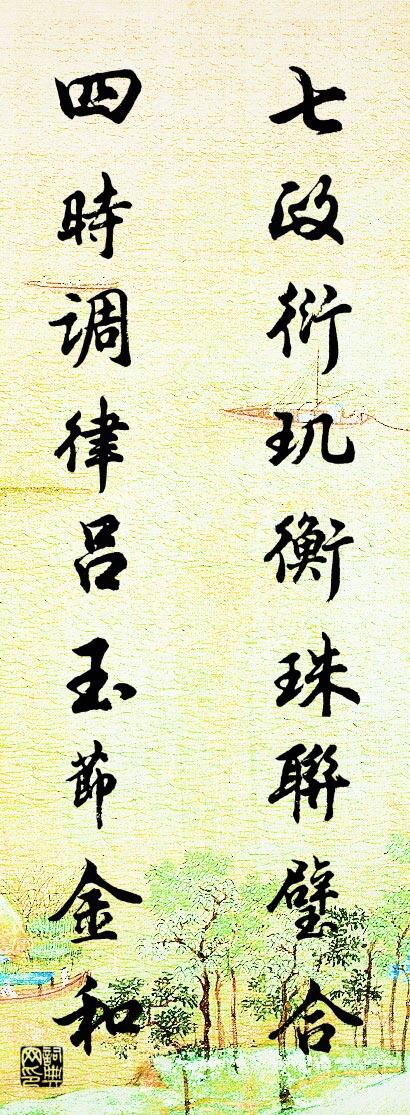 七政衍玑衡珠聯璧合
四時调律吕玉節金和
詞典网印